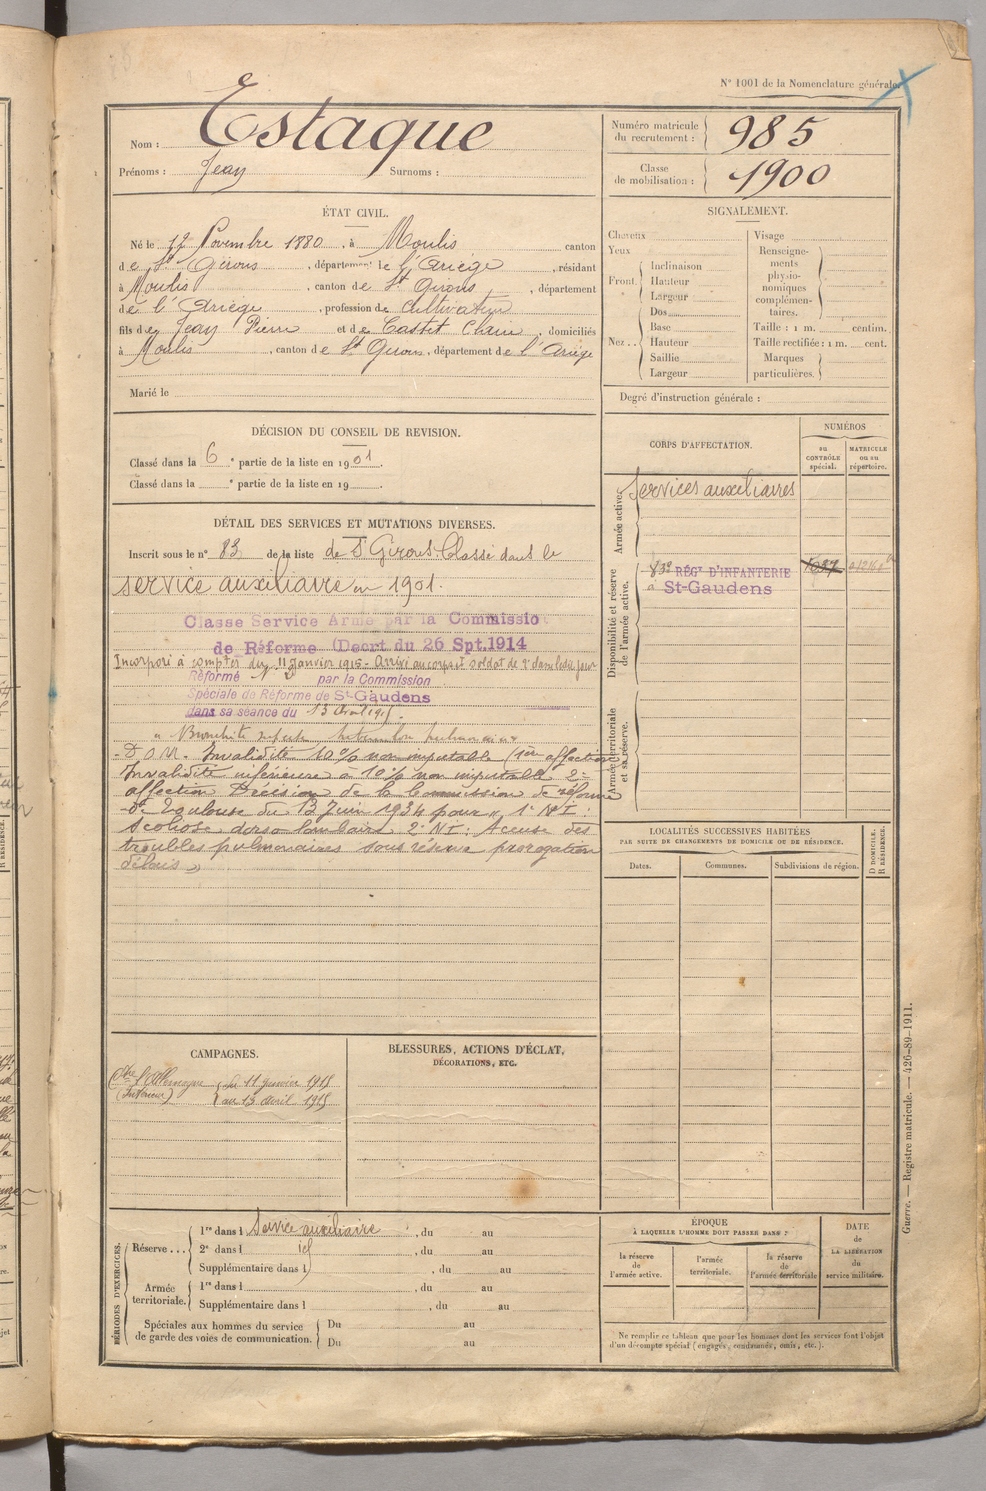 N° 1001 de la Nomenclature générale.
Nom : Estaque
Prénoms : Jean Surnoms :
Numéro matricule du recrutement : 985
Classe de mobilisation : 1900
ÉTAT CIVIL.
Né le 12 Novembre 1880, à Moulis canton
de St Girons, département de l'Ariège, résidant
à Moulis, canton de St Girons, département
de l'Ariège, profession de Cultivateur
fils de Jean Pierre et de Castet Claire, domiciliés
à Moulis, canton de St Girons, département de l'Ariège
Marié le
SIGNALEMENT.
Cheveux
Yeux
Front. Inclinaison
Hauteur
Largeur
Nez .. Dos
Base
Hauteur
Saillie
Largeur
Visage
Renseignements physionomiques complémentaires.
Taille : 1 m. centim.
Taille rectifiée : 1 m. cent.
Marques particulières.
Degré d'instruction générale :
DÉCISION DU CONSEIL DE REVISION.
Classé dans la 6e partie de la liste en 1901.
Classé dans la e partie de la liste en 19 .
DÉTAIL DES SERVICES ET MUTATIONS DIVERSES.
Inscrit sous le n° 83 de la liste de St Girons. Classé dans le
service auxiliaire en 1901.
Classe Service Armé par la Commissio
de Réforme (Decrt du 26 Spt. 1914
Incorporé à compter du 11 Janvier 1915. Arrivé au corps et soldat de 2e classe le dit jour
Réformé N° 2 par la Commission
Spéciale de Réforme de St-Gaudens
dans sa séance du 13 Avril 1915.
" Bronchite suspecte
D.O.M. Invalidité 10% non imputable (1ère affection)
Invalidité inférieure à 10% non imputable 2e
affection Décision de la Commission de réforme
de Toulouse du 13 Juin 1934 pour " 1° NI :
Scoliose dorso lombaire 2° NI : Accuse des
troubles pulmonaires sous réserve prorogation
délais "
CORPS D'AFFECTATION.
NUMÉROS
au CONTRÔLE spécial.
MATRICULE ou au répertoire.
Armée active.
Services auxiliaires
Disponibilité et réserve de l'armée active.
83e RÉGt D'INFANTERIE
à St-Gaudens
1037
Armée territoriale et sa réserve.
LOCALITÉS SUCCESSIVES HABITÉES
PAR SUITE DE CHANGEMENTS DE DOMICILE OU DE RÉSIDENCE.
Dates. Communes. Subdivisions de région.
D DOMICILE.
R RÉSIDENCE.
CAMPAGNES.
Ctre l'Allemagne du 11 janvier 1915
(Intérieur) au 13 avril 1915
BLESSURES, ACTIONS D'ÉCLAT,
DÉCORATIONS, ETC.
PÉRIODES D'EXERCICES.
Réserve ... 1re dans l Service auxiliaire, du au
2e dans l id, du au
Supplémentaire dans l , du au
Armée territoriale. 1re dans l , du au
Supplémentaire dans l , du au
Spéciales aux hommes du service
de garde des voies de communication.
Du au
Du au
ÉPOQUE
À LAQUELLE L'HOMME DOIT PASSER DANS :
la réserve de l'armée active.
l'armée territoriale.
la réserve de l'armée territoriale
DATE de LA LIBÉRATION du service militaire.
Ne remplir ce tableau que pour les hommes dont les services font l'objet
d'un décompte spécial (engagés, condamnés, omis, etc.).
Guerre. — Registre matricule. — 426-89-1911.